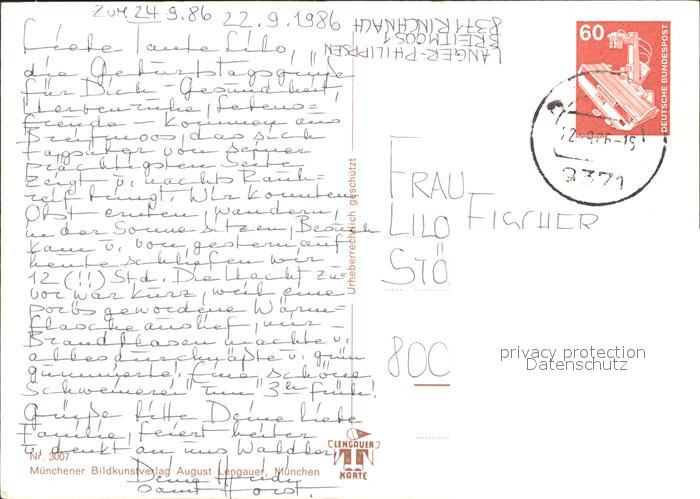 Zum 24.9.86 22.9.1986
Liebe Tante Lilo,
die Geburtstagsgrüße
für Dich - Gesundheit,
Nervenruhe, Lebens=
freude - kommen aus
Breitmoos, das sich
tagsüber von seiner
prächtigsten Seite
zeigt u. nachts Rauh=
reif bringt. Wir konnten
Obst ernten, wandern,
in der Sonne sitzen, Besuch
kam u. von gestern auf
heute schliefen wir
12 (!!) Std. Die Nacht zu=
vor war kurz, weil eine
porös gewordene Wärm=
flasche auslief, nur
Brandblasen machte u.
alles durchnäßte u. grün
gummierte. Eine schöne
Schweinerei um 3 Uhr früh!
Grüße bitte Deine liebe
Familie, feiert heiter
u. denkt an uns Waldler,
Deine
samt Horst.
LANGER-PHILIPPSEN
BREITMOOS 1
8371 RINCHNACH
60
DEUTSCHE BUNDESPOST
22.-9.86-15
8371
FRAU
LILO FISCHER
STÖ
800
privacy protection
Datenschutz
Urheberrechtlich geschützt
LENGAUER
KARTE
Nr. 3007
Münchener Bildkunstverlag August Lengauer, München